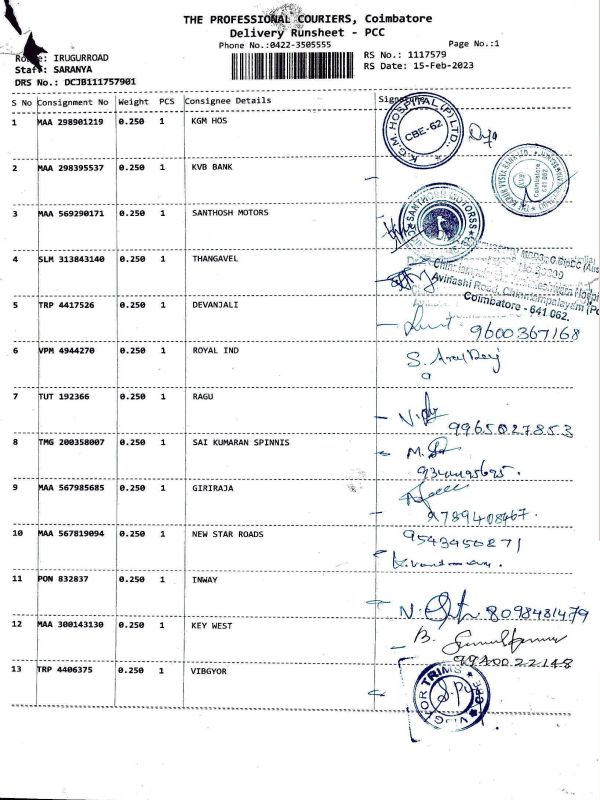 THE PROFESSIONAL COURIERS, Coimbatore
Delivery Runsheet - PCC
Phone No.:0422-3505555
Page No.:1
IRUGURROAD
RS No.: 1117579
Staff: SARANYA
RS Date: 15-Feb-2023
DRS No.: DCJB111757901
S No Consignment No Weight PCS Consignee Details Signature
1 MAA 298901219 0.250 1 KGM HOS
K.G.M. HOSPITAL (P) LTD. CBE-62
2 MAA 298395537 0.250 1 KVB BANK
Coimbatore 641 062
3 MAA 569290171 0.250 1 SANTHOSH MOTORS
SANTHOSH MOTORSS
4 SLM 313843140 0.250 1 THANGAVEL
Avinashi Road, Chinniampalayam (Po
Coimbatore - 641 062.
5 TRP 4417526 0.250 1 DEVANJALI
9600367168
6 VPM 4944270 0.250 1 ROYAL IND
7 TUT 192366 0.250 1 RAGU
9965027853
8 TMG 200358007 0.250 1 SAI KUMARAN SPINNIS
9 MAA 567985685 0.250 1 GIRIRAJA
9789408467.
10 MAA 567819094 0.250 1 NEW STAR ROADS
9543450271
11 PON 832837 0.250 1 INWAY
8098481479
12 MAA 300143130 0.250 1 KEY WEST
B.
13 TRP 4406375 0.250 1 VIBGYOR